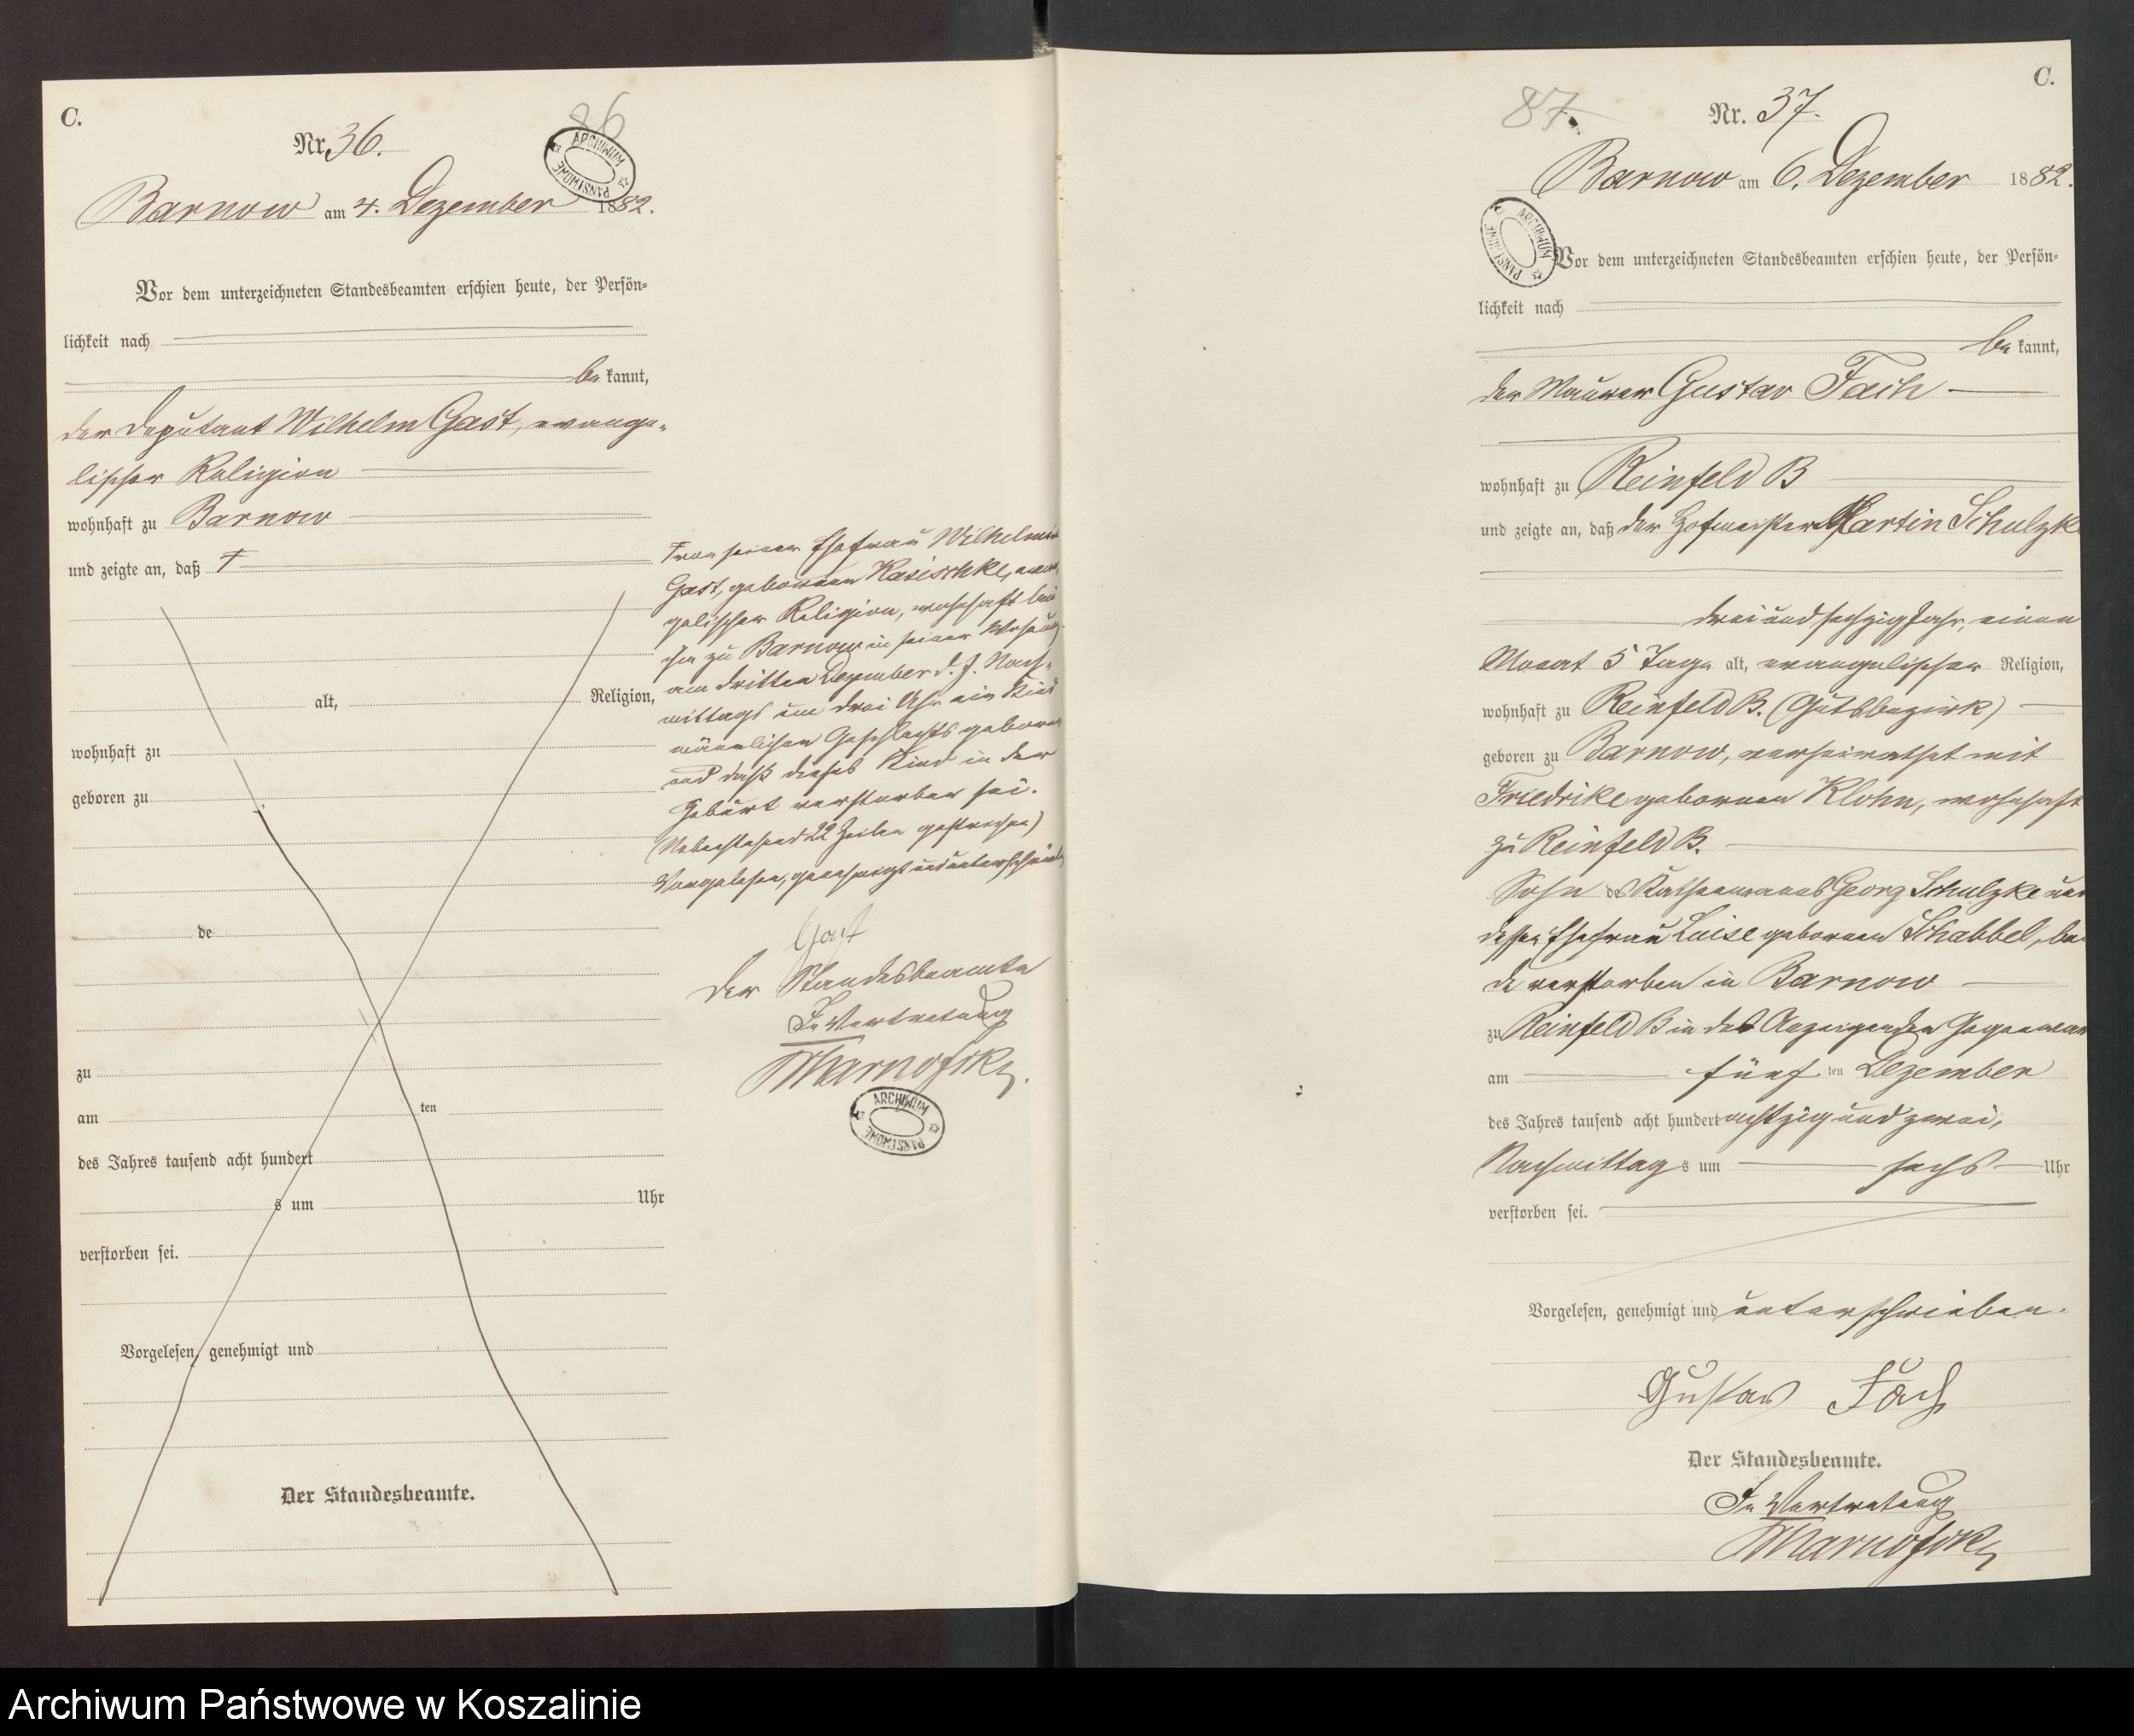 C.
Nr. 36.
86
ARCHIWUM PAŃSTWOWE
Barnow am 4. Dezember 1882.
Vor dem unterzeichneten Standesbeamten erschien heute, der Persön-
lichkeit nach
be kannt,
der Deputant Wilhelm Gast, evange-
lischer Religion
wohnhaft zu Barnow
und zeigte an, daß
alt, Religion,
wohnhaft zu
geboren zu
de
zu
am ten
des Jahres tausend acht hundert
s um Uhr
verstorben sei.
Vorgelesen, genehmigt und
Der Standesbeamte.
von seiner Ehefrau Wilhelmine
Gast, geborenen Kasischke, evan-
gelischer Religion, wohnhaft bei
ihm zu Barnow in seiner Wohnung
am dritten Dezember d. J. Nach-
mittags um drei Uhr ein Kind
männlichen Geschlechts geboren
und daß dieses Kind in der
Geburt verstorben sei.
(Nebenstehend 22 Zeilen gestrichen)
Vorgelesen, genehmigt und unterschrieben
Gast
Der Standesbeamte
In Vertretung
ARCHIWUM PAŃSTWOWE
C.
87.
Nr. 37.
Barnow am 6. Dezember 1882.
ARCHIWUM PAŃSTWOWE
Vor dem unterzeichneten Standesbeamten erschien heute, der Persön-
lichkeit nach
be kannt,
der Maurer Gustav Fach
wohnhaft zu Reinfeld B
und zeigte an, daß der Hofmeister Martin Schulzke
drei und sechzig Jahr, einen
Monat 5 Tage alt, evangelischer Religion,
wohnhaft zu Reinfeld B. (Gutsbezirk)
geboren zu Barnow, verheirathet mit
Friedrike geborenen Klohn, wohnhaft
zu Reinfeld B.
Sohn des Kathenmanns Georg Schulzke und
dessen Ehefrau Luise geborenen Schabbel, bei-
de verstorben in Barnow
zu Reinfeld B in des Anzeigenden Gegenwart
am fünf ten Dezember
des Jahres tausend acht hundert achtzig und zwei,
Nachmittag s um sechs Uhr
verstorben sei.
Vorgelesen, genehmigt und unterschrieben.
Gustav Fach
Der Standesbeamte.
In Vertretung
Archiwum Państwowe w Koszalinie